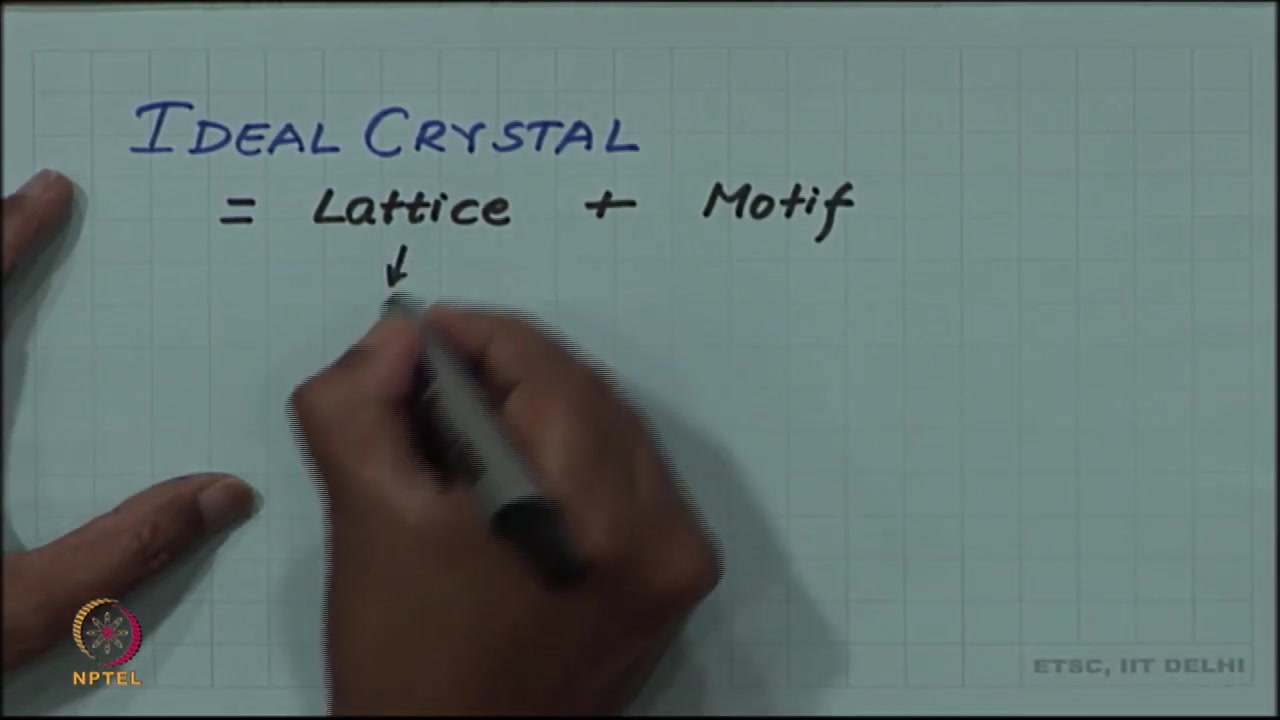 IDEAL CRYSTAL
= Lattice + Motif
↓
NPTEL
ETSC, IIT DELHI